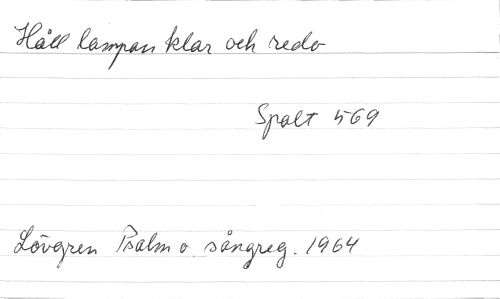 Håll lampan klar och redo
Spalt 569
Lövgren Psalm o. sångreg. 1964